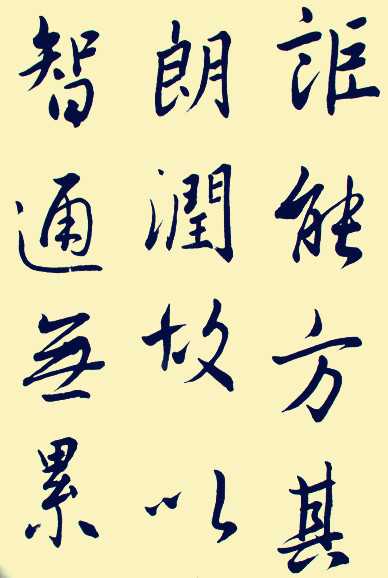 詎能方其
朗潤故以
智通無累